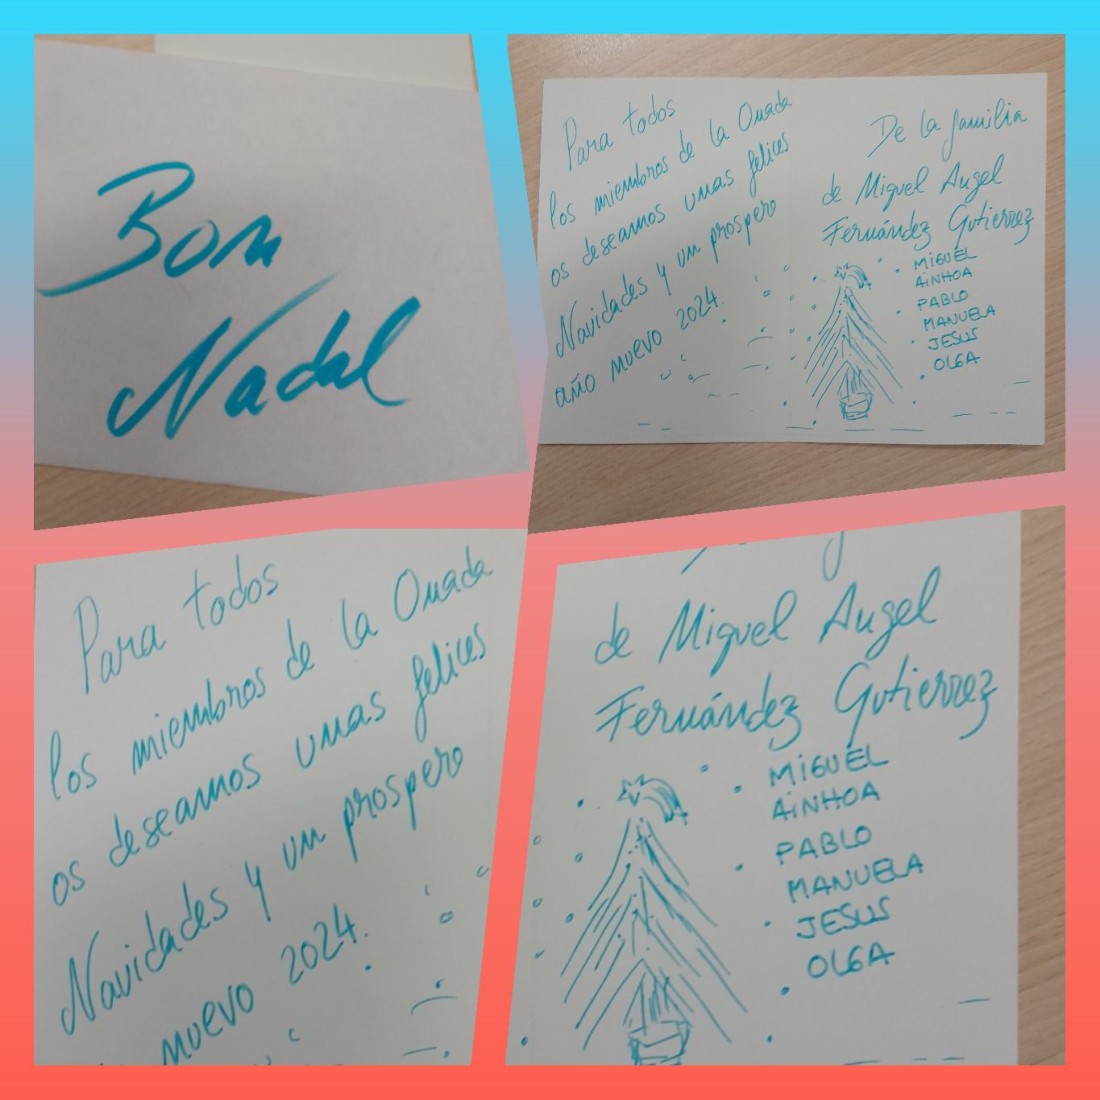 Bon
Nadal
Para todos
los miembros de la Onada
os deseamos unas felices
Navidades y un prospero
año nuevo 2024.
De la familia
de Miguel Angel
Fernández Gutierrez
MIGUEL
AINHOA
PABLO
MANUELA
JESUS
OLGA
Para todos
los miembros de la Onada
os deseamos unas felices
Navidades y un prospero
nuevo 2024.
de Miguel Angel
Fernández Gutierrez
MIGUEL
AINHOA
PABLO
MANUELA
JESUS
OLGA